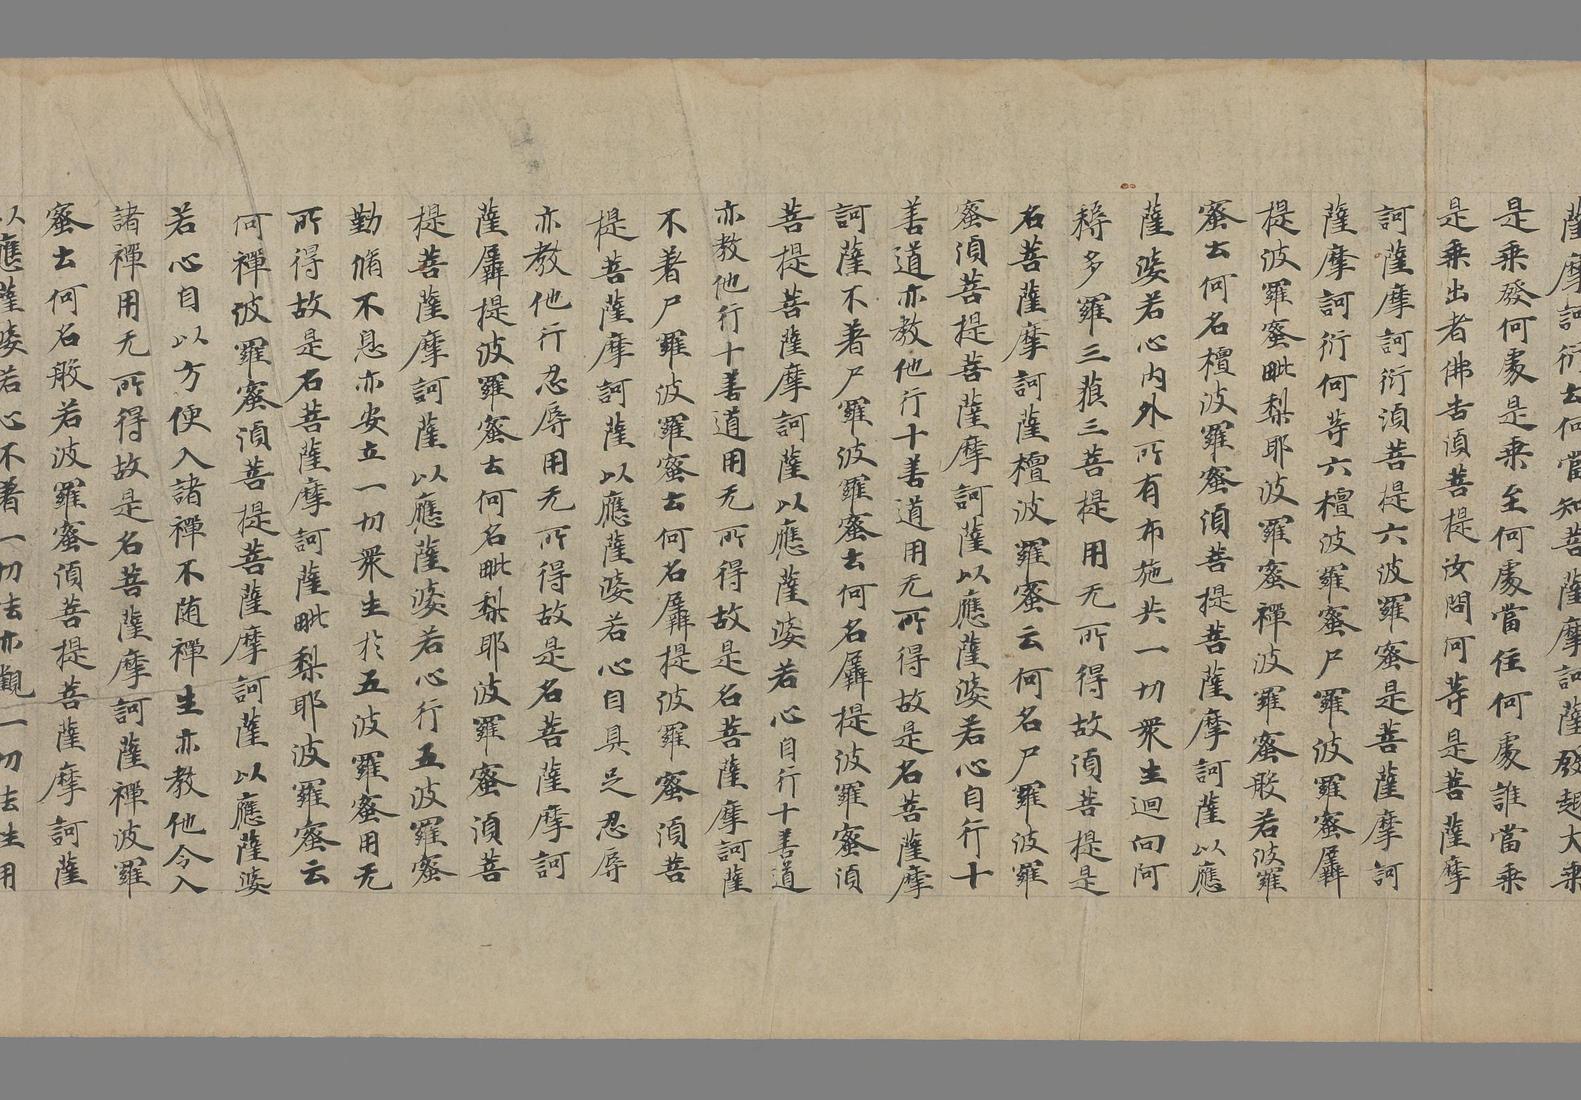 薩摩訶衍云何當知菩薩摩訶薩發趣大乘
是乘發何處是乘至何處當住何處誰當乘
是乘出者佛告湏菩提汝問何等是菩薩摩
訶薩摩訶衍湏菩提六波羅蜜是菩薩摩訶
薩摩訶衍何等六檀波羅蜜尸羅波羅蜜羼
提波羅蜜毗梨耶波羅蜜禪波羅蜜般若波羅
蜜云何名檀波羅蜜湏菩提菩薩摩訶薩以應
薩婆若心內外所有布施共一切衆生迴向阿
耨多羅三藐三菩提用无所得故湏菩提是
名菩薩摩訶薩檀波羅蜜云何名尸羅波羅
蜜湏菩提菩薩摩訶薩以應薩婆若心自行十
善道亦教他行十善道用无所得故是名菩薩摩
訶薩不著尸羅波羅蜜云何名羼提波羅蜜湏
菩提菩薩摩訶薩以應薩婆若心自行十善道
亦教他行十善道用无所得故是名菩薩摩訶薩
不著尸羅波羅蜜云何名羼提波羅蜜湏菩
提菩薩摩訶薩以應薩婆若心自具足忍辱
亦教他行忍辱用无所得故是名菩薩摩訶
薩羼提波羅蜜云何名毗梨耶波羅蜜湏菩
提菩薩摩訶薩以應薩婆若心行五波羅蜜
勤脩不息亦安立一切衆生於五波羅蜜用无
所得故是名菩薩摩訶薩毗梨耶波羅蜜云
何禪波羅蜜湏菩提菩薩摩訶薩以應薩婆
若心自以方便入諸禪不随禪生亦教他令入
諸禪用无所得故是名菩薩摩訶薩禪波羅
蜜云何名般若波羅蜜湏菩提菩薩摩訶薩
以應薩婆若心不著一切法亦觀一切法生用